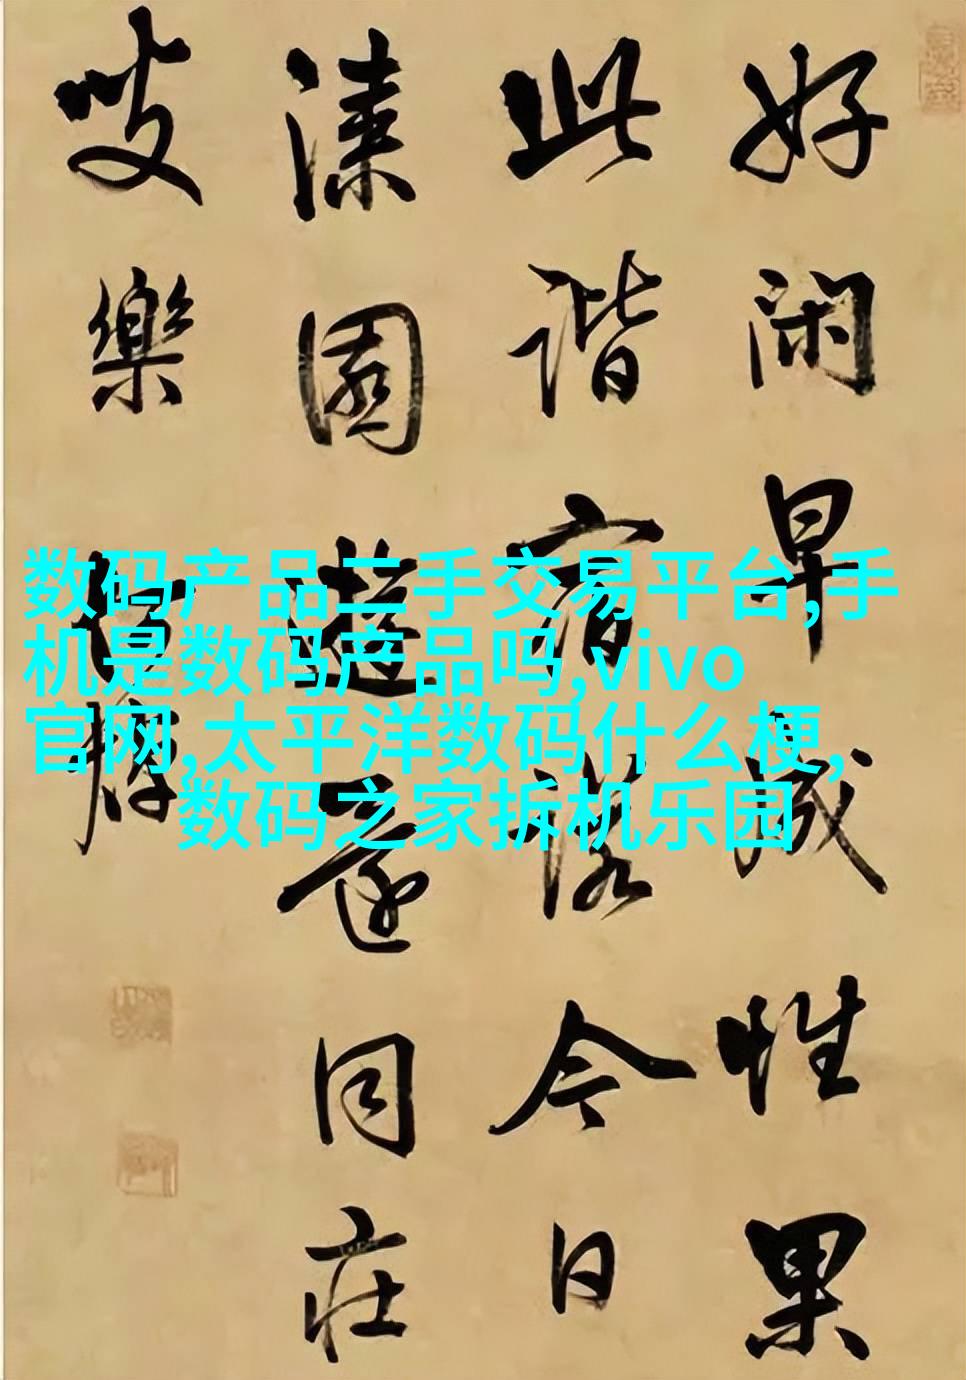 好閑早成性果
此諧宿諾今日
漆園遊還同庄
叟樂
数码产品二手交易平台,手
机是数码产品吗,vivo
官网,太平洋数码什么梗,
数码之家拆机乐园